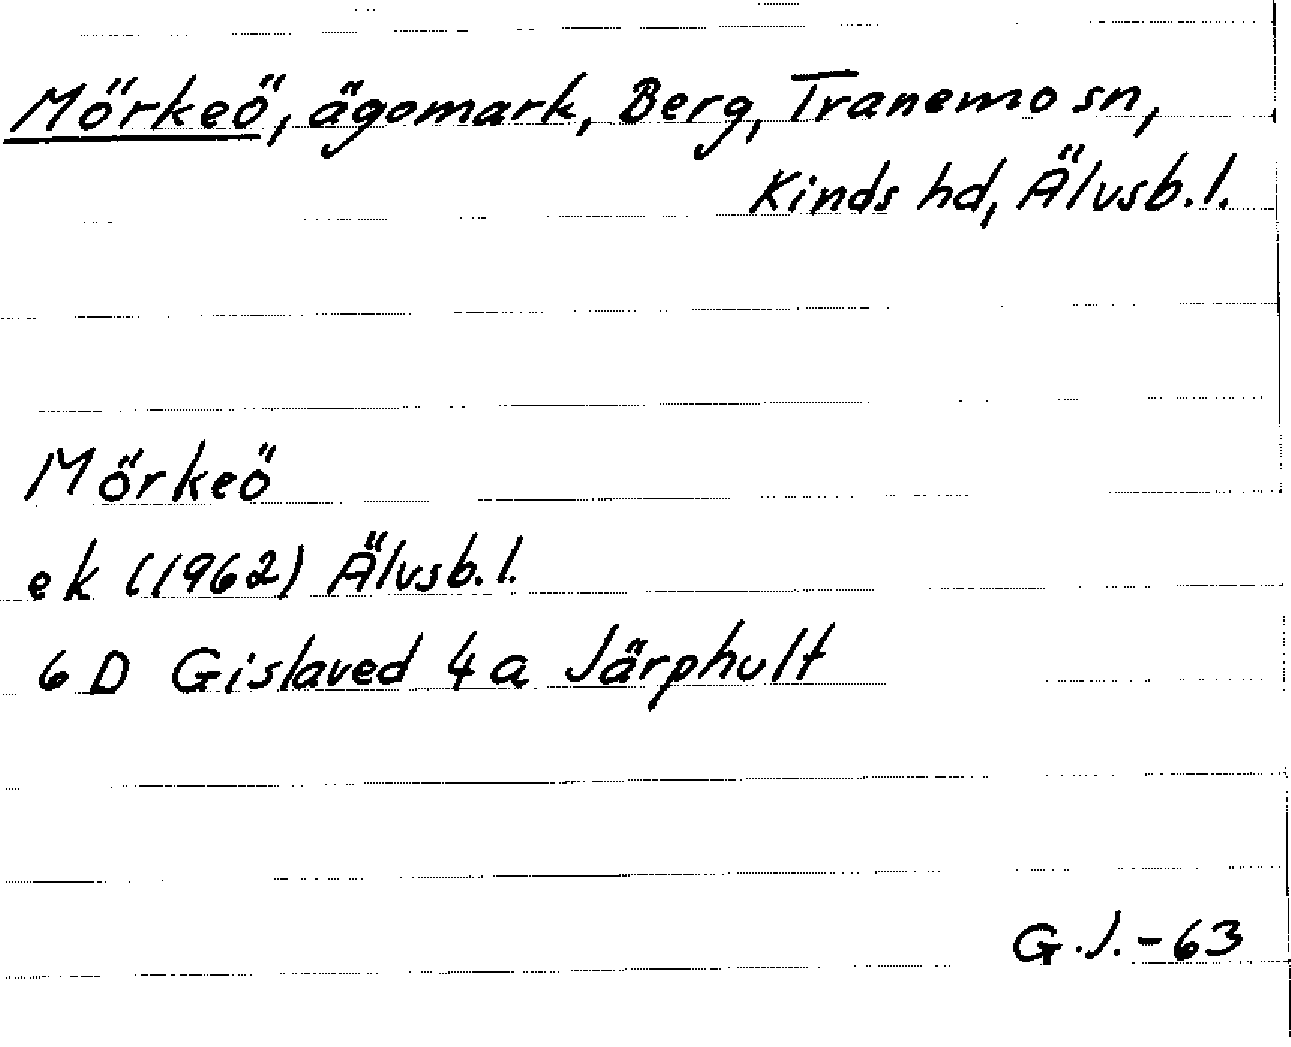 Mörkeö, ägomark, Berg, Tranemo sn,
Kinds hd, Älvsb.l.
Mörkeö
ek (1962) Älvsb.l.
6 D Gislaved 4 a Järphult
G.J.-63